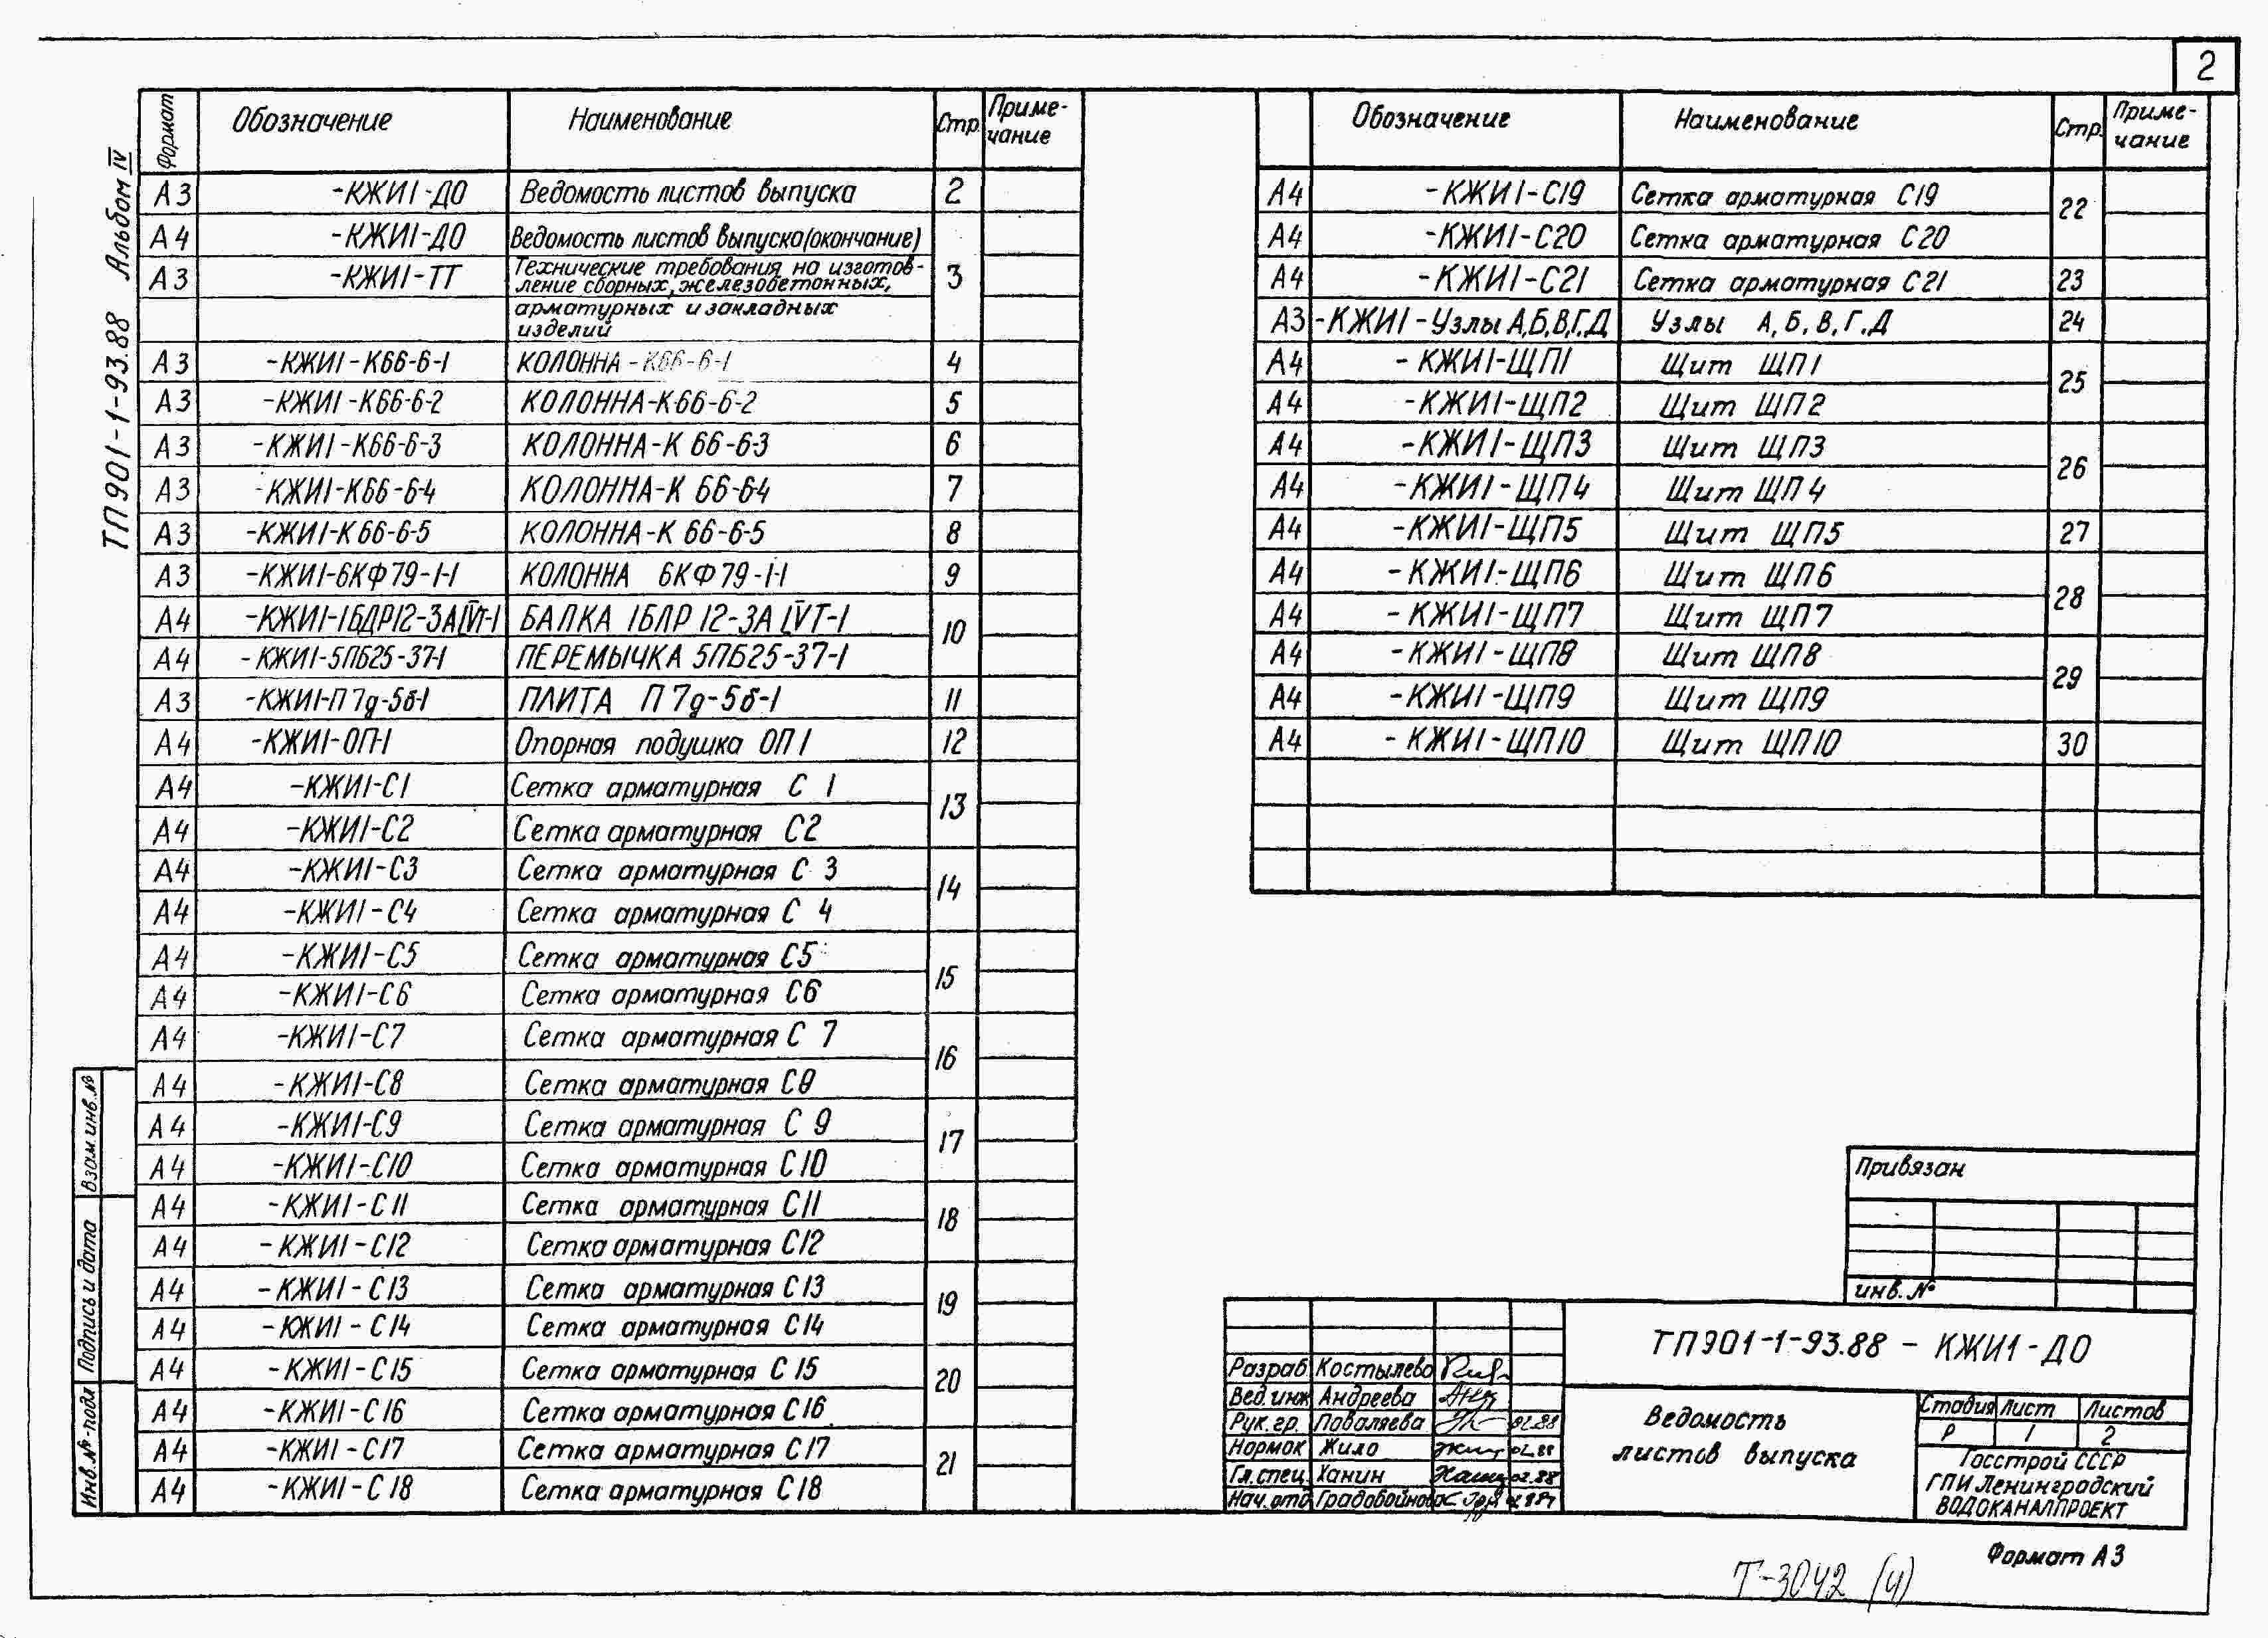 2
ТП901-1-93.88 Альбом IV
Формат Обозначение Наименование Стр. Приме-
чание
А3 -КЖИ1-ДО Ведомость листов выпуска 2
А4 -КЖИ1-ДО Ведомость листов выпуска (окончание)
А3 -КЖИ1-ТТ Технические требования на изготов-
ление сборных, железобетонных, 3
арматурных и закладных
изделий
А3 -КЖИ1-К66-6-1 КОЛОННА-К66-6-1 4
А3 -КЖИ1-К66-6-2 КОЛОННА-К66-6-2 5
А3 -КЖИ1-К66-6-3 КОЛОННА-К 66-6-3 6
А3 -КЖИ1-К66-6-4 КОЛОННА-К 66-6-4 7
А3 -КЖИ1-К66-6-5 КОЛОННА-К 66-6-5 8
А3 -КЖИ1-6КФ79-1-1 КОЛОННА 6КФ79-1-1 9
А4 -КЖИ1-1БДР12-3АIVТ-1 БАЛКА 1БДР 12-3А IVТ-1 10
А4 -КЖИ1-5ПБ25-37-1 ПЕРЕМЫЧКА 5ПБ25-37-1
А3 -КЖИ1-П7д-5б-1 ПЛИТА П7д-5б-1 11
А4 -КЖИ1-ОП-1 Опорная подушка ОП1 12
А4 -КЖИ1-С1 Сетка арматурная С 1 13
А4 -КЖИ1-С2 Сетка арматурная С2
А4 -КЖИ1-С3 Сетка арматурная С 3 14
А4 -КЖИ1-С4 Сетка арматурная С 4
А4 -КЖИ1-С5 Сетка арматурная С5 15
А4 -КЖИ1-С6 Сетка арматурная С6
А4 -КЖИ1-С7 Сетка арматурная С 7 16
А4 -КЖИ1-С8 Сетка арматурная С8
А4 -КЖИ1-С9 Сетка арматурная С 9 17
А4 -КЖИ1-С10 Сетка арматурная С10
А4 -КЖИ1-С11 Сетка арматурная С11 18
А4 -КЖИ1-С12 Сетка арматурная С12
А4 -КЖИ1-С13 Сетка арматурная С13 19
А4 -КЖИ1-С14 Сетка арматурная С14
А4 -КЖИ1-С15 Сетка арматурная С15 20
А4 -КЖИ1-С16 Сетка арматурная С16
А4 -КЖИ1-С17 Сетка арматурная С17 21
А4 -КЖИ1-С18 Сетка арматурная С18
Обозначение Наименование Стр. Приме-
чание
А4 -КЖИ1-С19 Сетка арматурная С19 22
А4 -КЖИ1-С20 Сетка арматурная С20
А4 -КЖИ1-С21 Сетка арматурная С21 23
А3 -КЖИ1-Узлы А,Б,В,Г,Д Узлы А, Б, В, Г, Д 24
А4 -КЖИ1-ЩП1 Щит ЩП1 25
А4 -КЖИ1-ЩП2 Щит ЩП2
А4 -КЖИ1-ЩП3 Щит ЩП3 26
А4 -КЖИ1-ЩП4 Щит ЩП4
А4 -КЖИ1-ЩП5 Щит ЩП5 27
А4 -КЖИ1-ЩП6 Щит ЩП6 28
А4 -КЖИ1-ЩП7 Щит ЩП7
А4 -КЖИ1-ЩП8 Щит ЩП8 29
А4 -КЖИ1-ЩП9 Щит ЩП9
А4 -КЖИ1-ЩП10 Щит ЩП10 30
Взам.инв.№
Подпись и дата
Инв.№ подл
Привязан
инв.№
ТП901-1-93.88 - КЖИ1-ДО
Разраб Костылево
Вед.инж Андреева
Рук.гр. Поваляева 02.88
Нормок Жило 02.88
Гл.спец. Ханин 02.88
Нач.отд Градобойнова
Ведомость
листов выпуска
Стадия Лист Листов
Р 1 2
Госстрой СССР
ГПИ Ленинградский
ВОДОКАНАЛПРОЕКТ
Формат А3
Т-3042 (4)